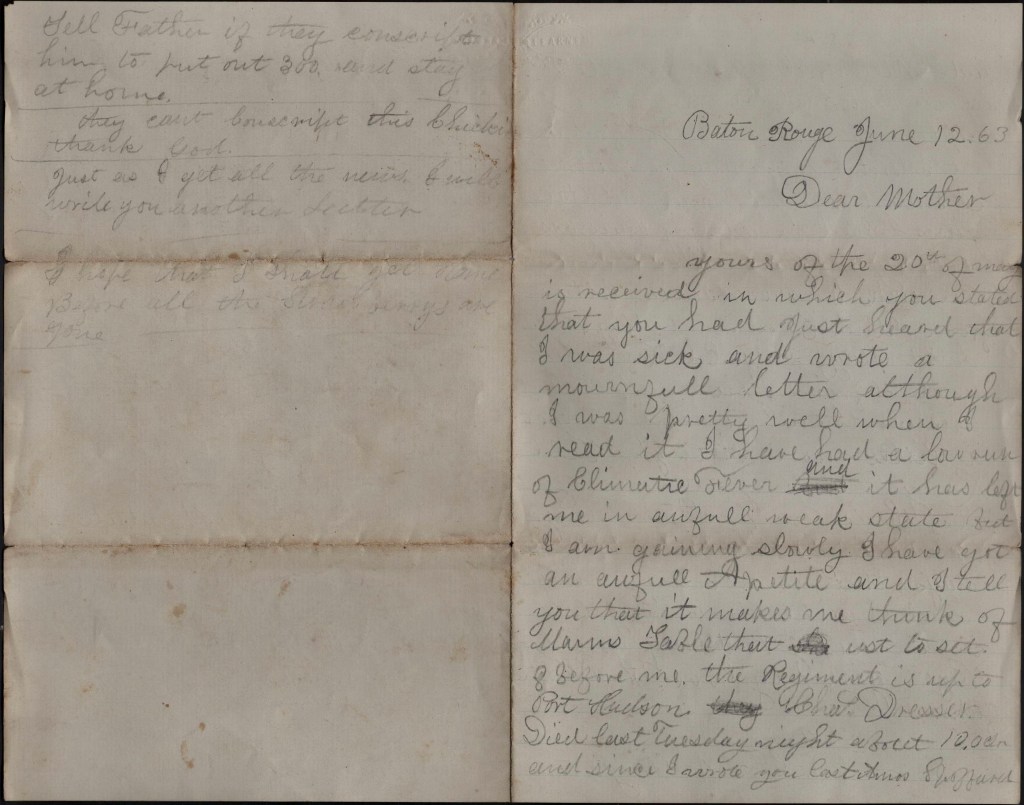 Tell Father if they conscript
him to put out 300, and stay
at home.
they cant Conscript this Chicki
thank God.
Just as I get all the news I will
write you another Lettter
I hope that I shall get home
Before all the berrys are
gone
Baton Rouge June 12. 63
Dear Mother
yours of the 20th of may
is received in which you stated
that you had Just heard that
I was sick and wrote a
mournfull letter although
I was pretty well when I
read it I have had a run
of Climatic Fever and it has left
me in awfull weak state but
I am gaining slowly I have got
an awfull Apetite and I tell
you that it makes me think of
Marms Table that ust to set
before me. the Regiment is up to
Port Hudson Chas. Dresser
Died last Tuesday night about 10.Oclk
and since I wrote you last Amos Spoffard